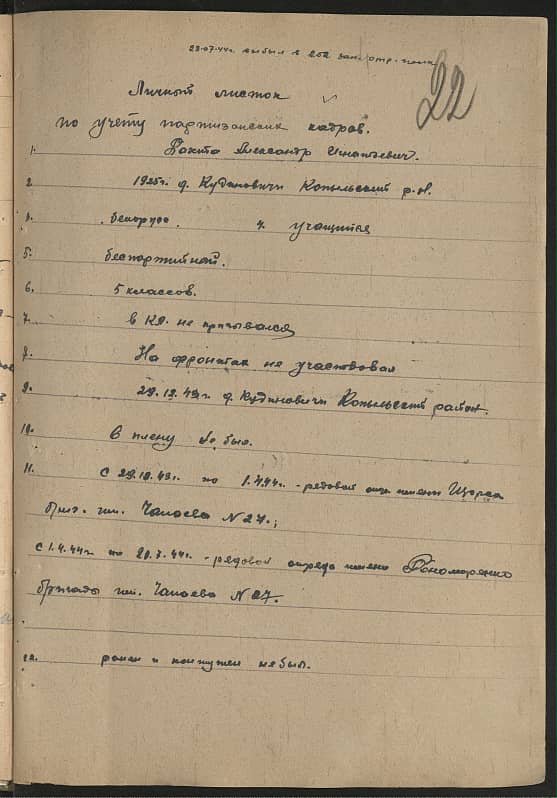 23.07.44г. выбыл в 252 зап. стр. полк
22
Личный листок
по учёту партизанских кадров.
1. Ракита Александр Игнатьевич.
2. 1925г. д. Кудиновичи Копыльский р-н.
3. белорус. 4. учащийся
5. беспартийный.
6. 5 классов.
7. в КА не призывался
8. На фронтах не участвовал
9. 29.10.43г. д. Кудиновичи Копыльский район.
10. В плену не был.
11. с 29.10.43г. по 1.4.44г. - рядовой отр. имени Щорса
бриг. им. Чапаева N 27.;
с 1.4.44г. по 20.7.44г. - рядовой отряда имени Пономаренко
бригады им. Чапаева N 27.
12. ранен и контужен не был.